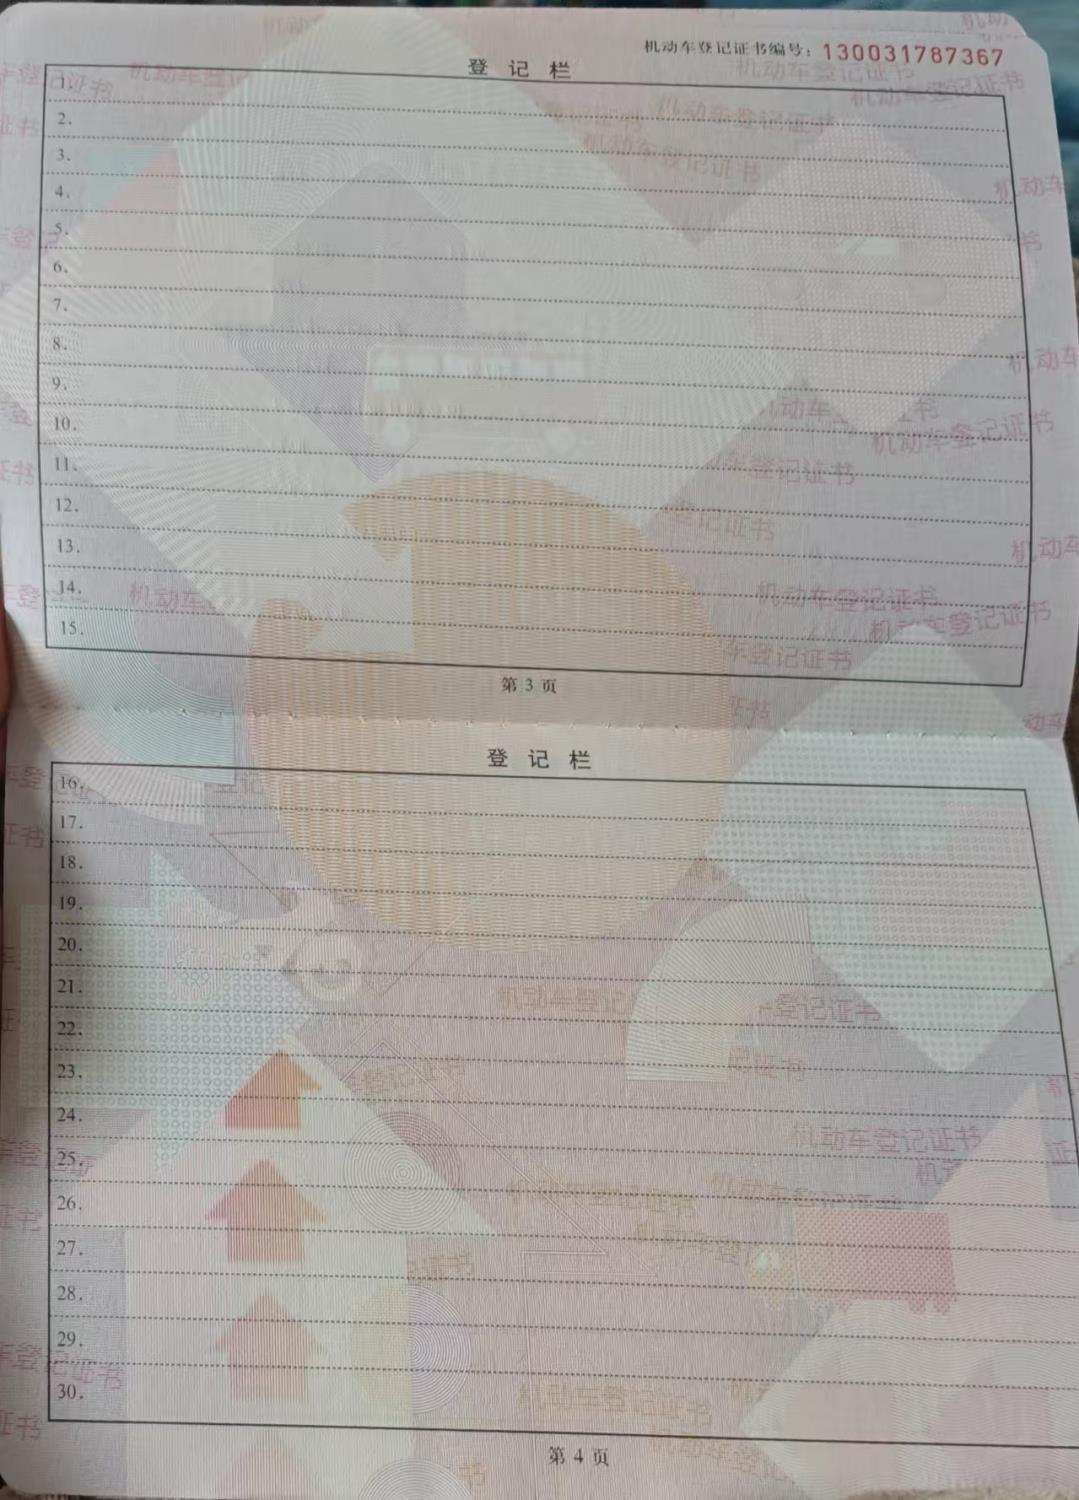 机动车登记证书编号：130031787367
登 记 栏
1.
2.
3.
4.
5.
6.
7.
8.
9.
10.
11.
12.
13.
14.
15.
第 3 页
登 记 栏
16.
17.
18.
19.
20.
21.
22.
23.
24.
25.
26.
27.
28.
29.
30.
第 4 页